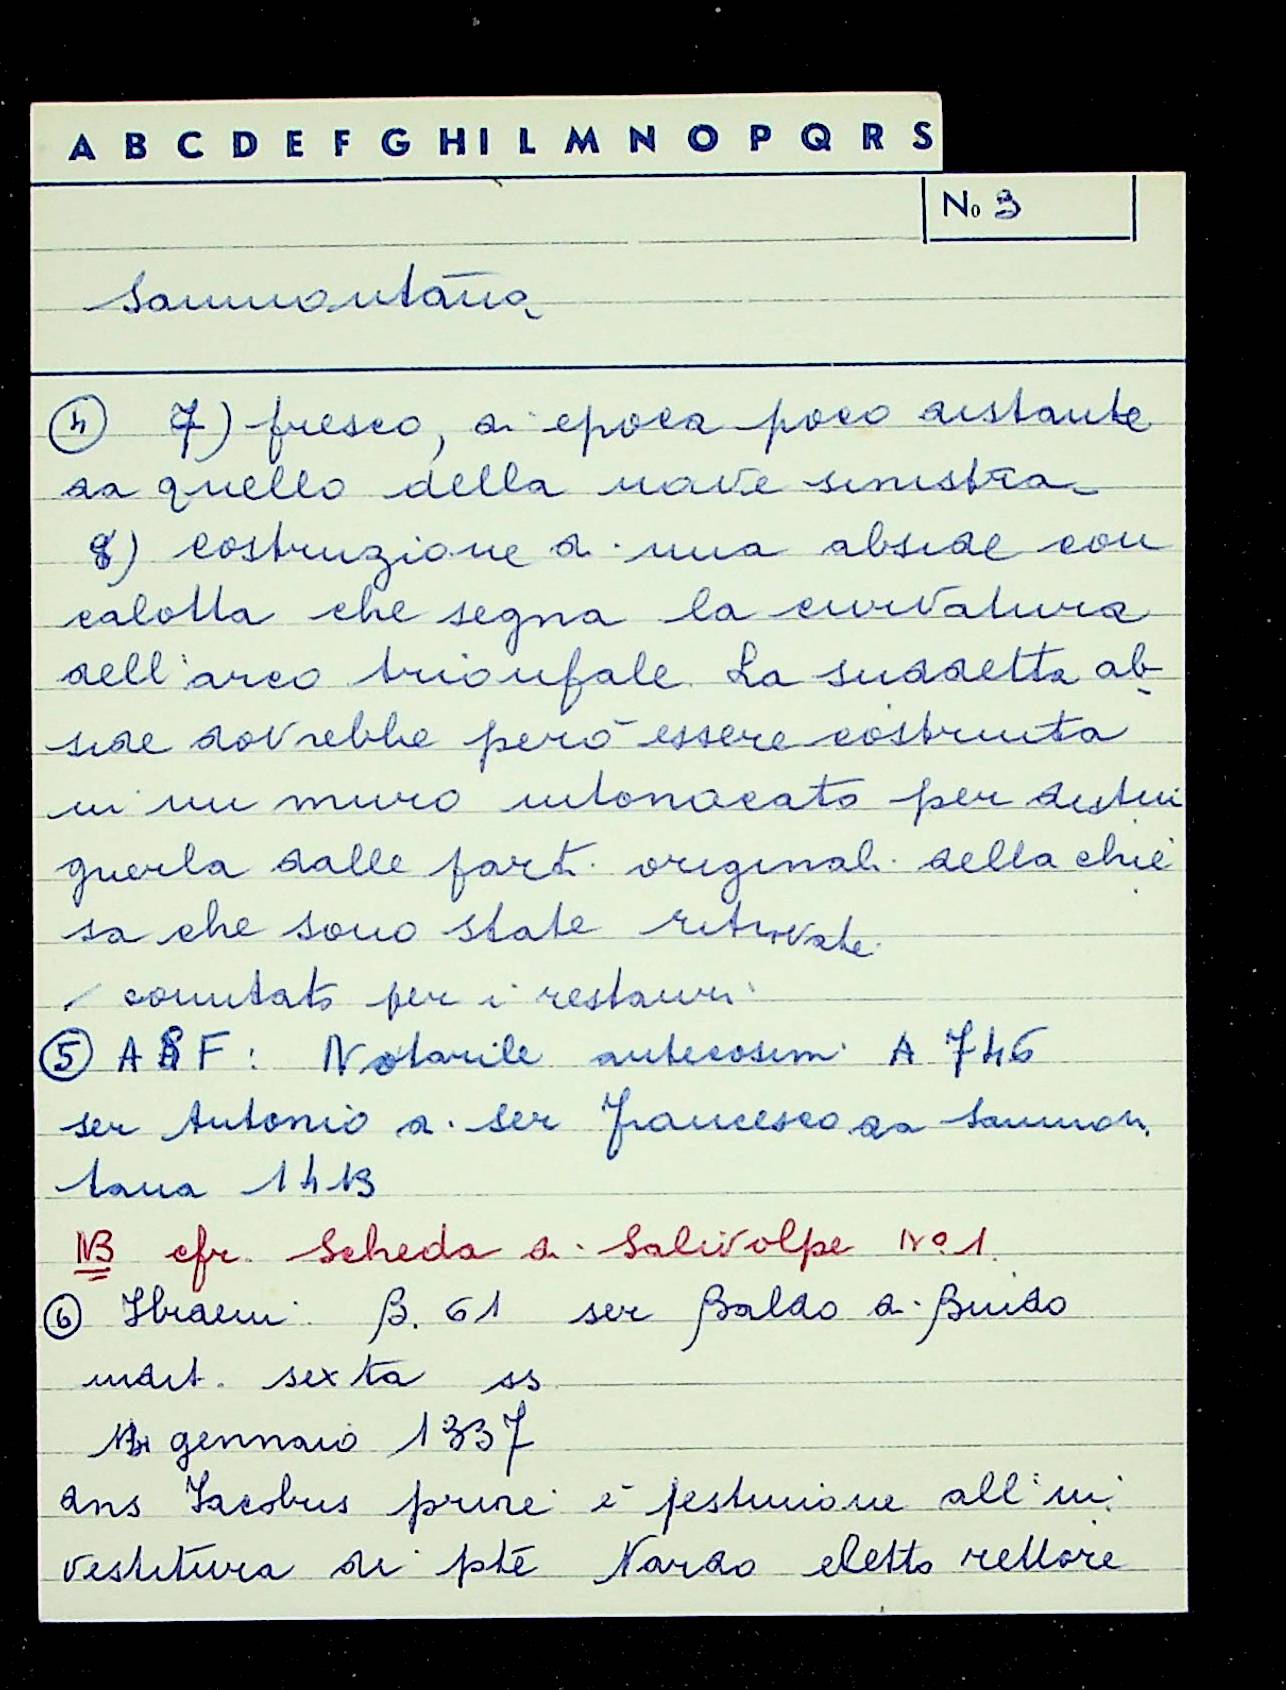 A B C D E F G H I L M N O P Q R S
No 3
Sammontana
④ 7) fresco, di epoca poco distante
da quello della nave sinistra.
8) costruzione di una abside con
calotta che segna la curvatura
dell'arco trionfale. La suddetta ab-
side dovrebbe però essere costruita
in un muro intonacato per distin
guerla dalle parti originali della chie
sa che sono state ritrovate.
comitato per i restauri
⑤ ASF: Notarile antecosim. A 746
ser Antonio di ser Francesco da Sammon
tana 1413
NB cfr. Scheda di Salivolpe No 1.
⑥ Ibidem B. 61 ser Baldo di Guido
indit. sexta
gennaio 1337
dns Jacobus è testimone all'in
vestitura di pte Nardo eletto rettore